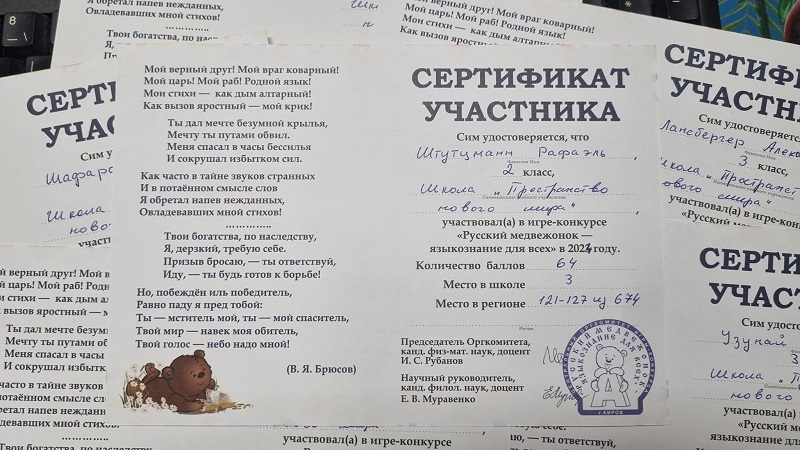 Мой верный друг! Мой враг коварный!
Мой царь! Мой раб! Родной язык!
Мои стихи — как дым алтарный!
Как вызов яростный — мой крик!
Ты дал мечте безумной крылья,
Мечту ты путами обвил.
Меня спасал в часы бессилья
И сокрушал избытком сил.
Как часто в тайне звуков странных
И в потаённом смысле слов
Я обретал напев нежданных,
Овладевавших мной стихов!
..............
Твои богатства, по наследству,
Я, дерзкий, требую себе.
Призыв бросаю, — ты ответствуй,
Иду, — ты будь готов к борьбе!
Но, побеждён иль победитель,
Равно паду я пред тобой:
Ты — мститель мой, ты — мой спаситель,
Твой мир — навек моя обитель,
Твой голос — небо надо мной!
(В. Я. Брюсов)
СЕРТИФИКАТ
УЧАСТНИКА
Сим удостоверяется, что
Штутцманн Рафаэль,
Фамилия Имя
2 класс,
Школа "Пространство
нового мира",
участвовал(а) в игре-конкурсе
«Русский медвежонок —
языкознание для всех» в 2024 году.
Количество баллов 64
Место в школе 3
Место в регионе 121-127 из 674
Регион
Председатель Оргкомитета,
канд. физ-мат. наук, доцент
И. С. Рубанов
Научный руководитель,
канд. филол. наук, доцент
Е. В. Муравенко
РУССКИЙ МЕДВЕЖОНОК
ЯЗЫКОЗНАНИЕ ДЛЯ ВСЕХ
г. КИРОВ
Я обретал напев нежданных,
Овладевавших мной стихов!
Твои богатства, по нас
Мой царь! Мой раб! Родной язык!
Мои стихи — как дым алтарный!
Как вызов яростный — мой крик!
СЕРТ
УЧАС
Сим у
Школа
ново
участ
СЕРТИФ
УЧАСТН
Сим удостоверяется
Лансбергер Алек
3 класс,
Школа "Пространст
ового мира"
участвовал(а) в игре-конкурсе
й верный друг! Мой в
й царь! Мой раб! Родн
и стихи — как дым ал
к вызов яростный — м
Ты дал мечте безумн
Мечту ты путами об
Меня спасал в часы
И сокрушал избытк
часто в тайне звуков
потаённом смысле сло
ретал напев нежданн
адевавших мной стихо
..............
Твои богатства, по наследству,
участвовал(а) в игре-конкурсе
— ты ответствуй,
СЕРТИ
УЧАСТ
Сим удосто
Узунай
3
Школа "П
нового
участвовал(а)
«Русский
языкознание для